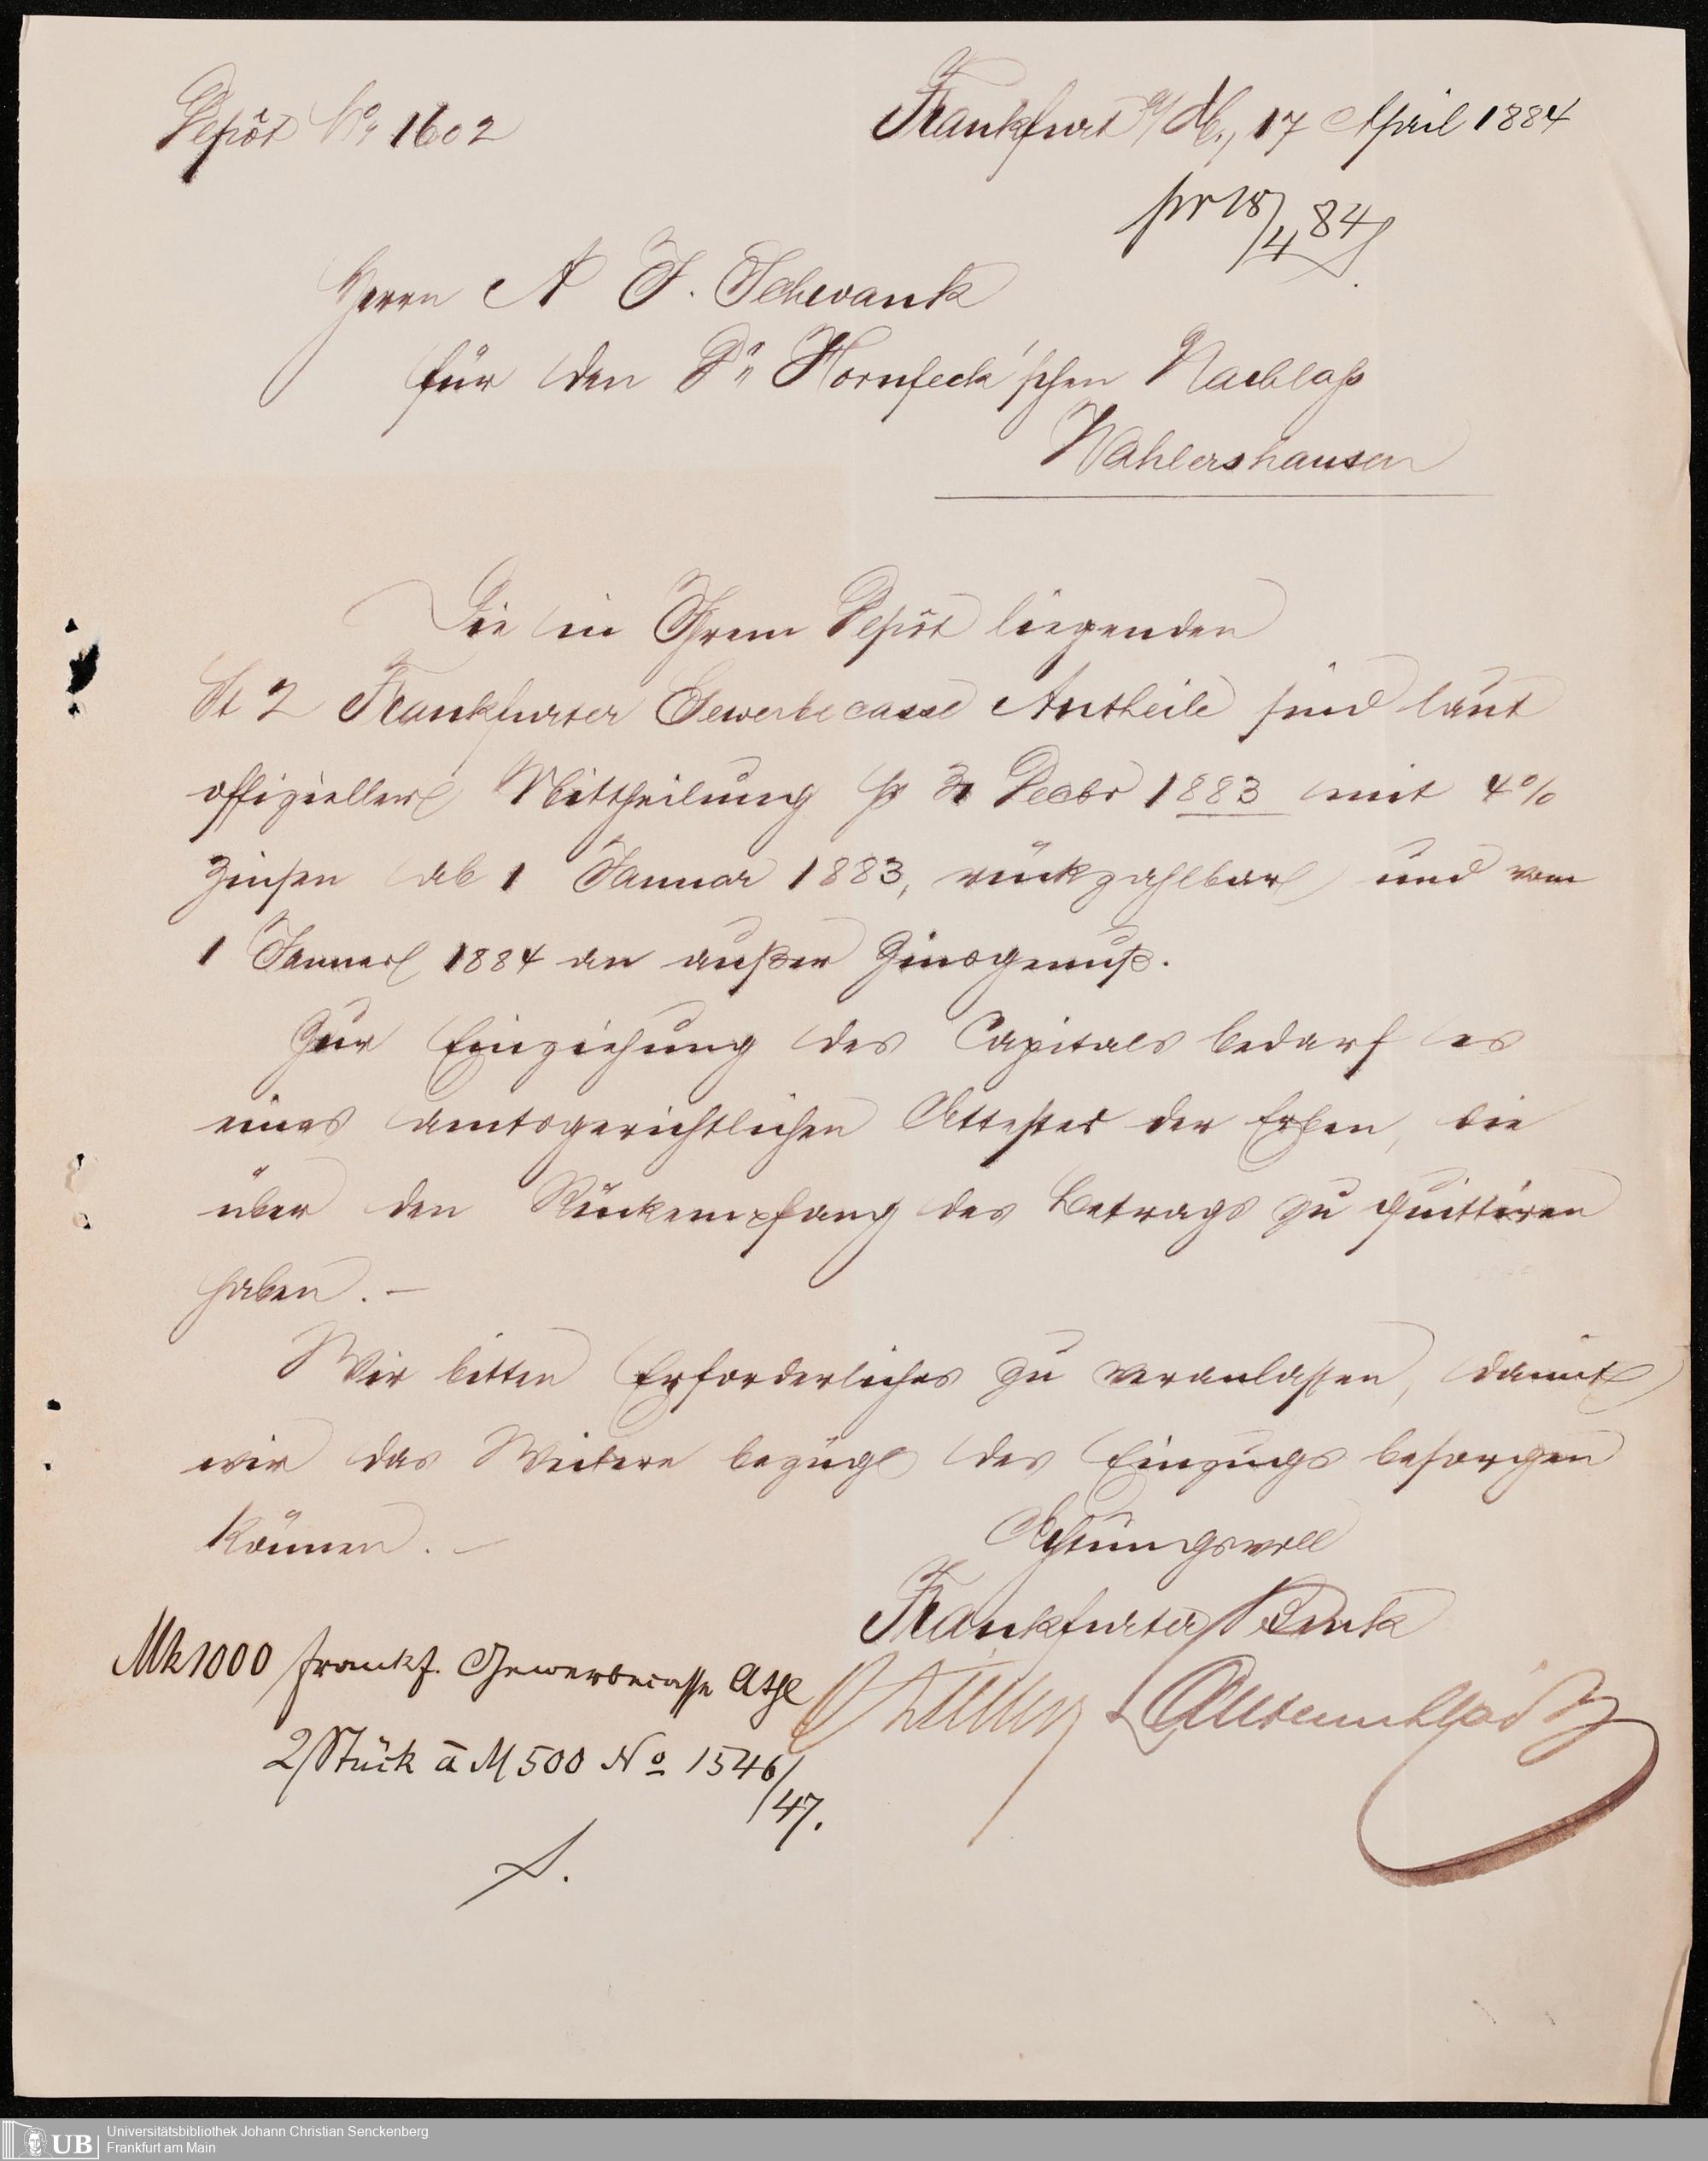 Depôt No. 1602
Frankfurt a/M., 17 April 1884
pr 18/4 84
Herrn A F. Schwank
für den Dr. Hornfeck'schen Nachlaß
Wahlershausen
Die in Ihrem Depôt liegenden
St 2 Frankfurter Gewerbecasse Antheile sind laut
offizieller Mittheilung pr 31 Decbr 1883 mit 4%
Zinsen ab 1 Januar 1883, rückzahlbar und vom
1 Januar 1884 an außer Zinsgenuß.
Zur Einziehung des Capitals bedarf es
eines amtsgerichtlichen Attestes der Erben, die
über den Rückempfang des Betrags zu quittiren
haben. –
Wir bitten Erforderliches zu veranlassen, damit
wir das Weitere bezügl des Einzugs besorgen
können. –
Achtungsvoll
Frankfurter Bank
Mk 1000 Frankf. Gewerbecasse Athl
2 Stück à M 500 No 1546/47.
Universitätsbibliothek Johann Christian Senckenberg
Frankfurt am Main
UB